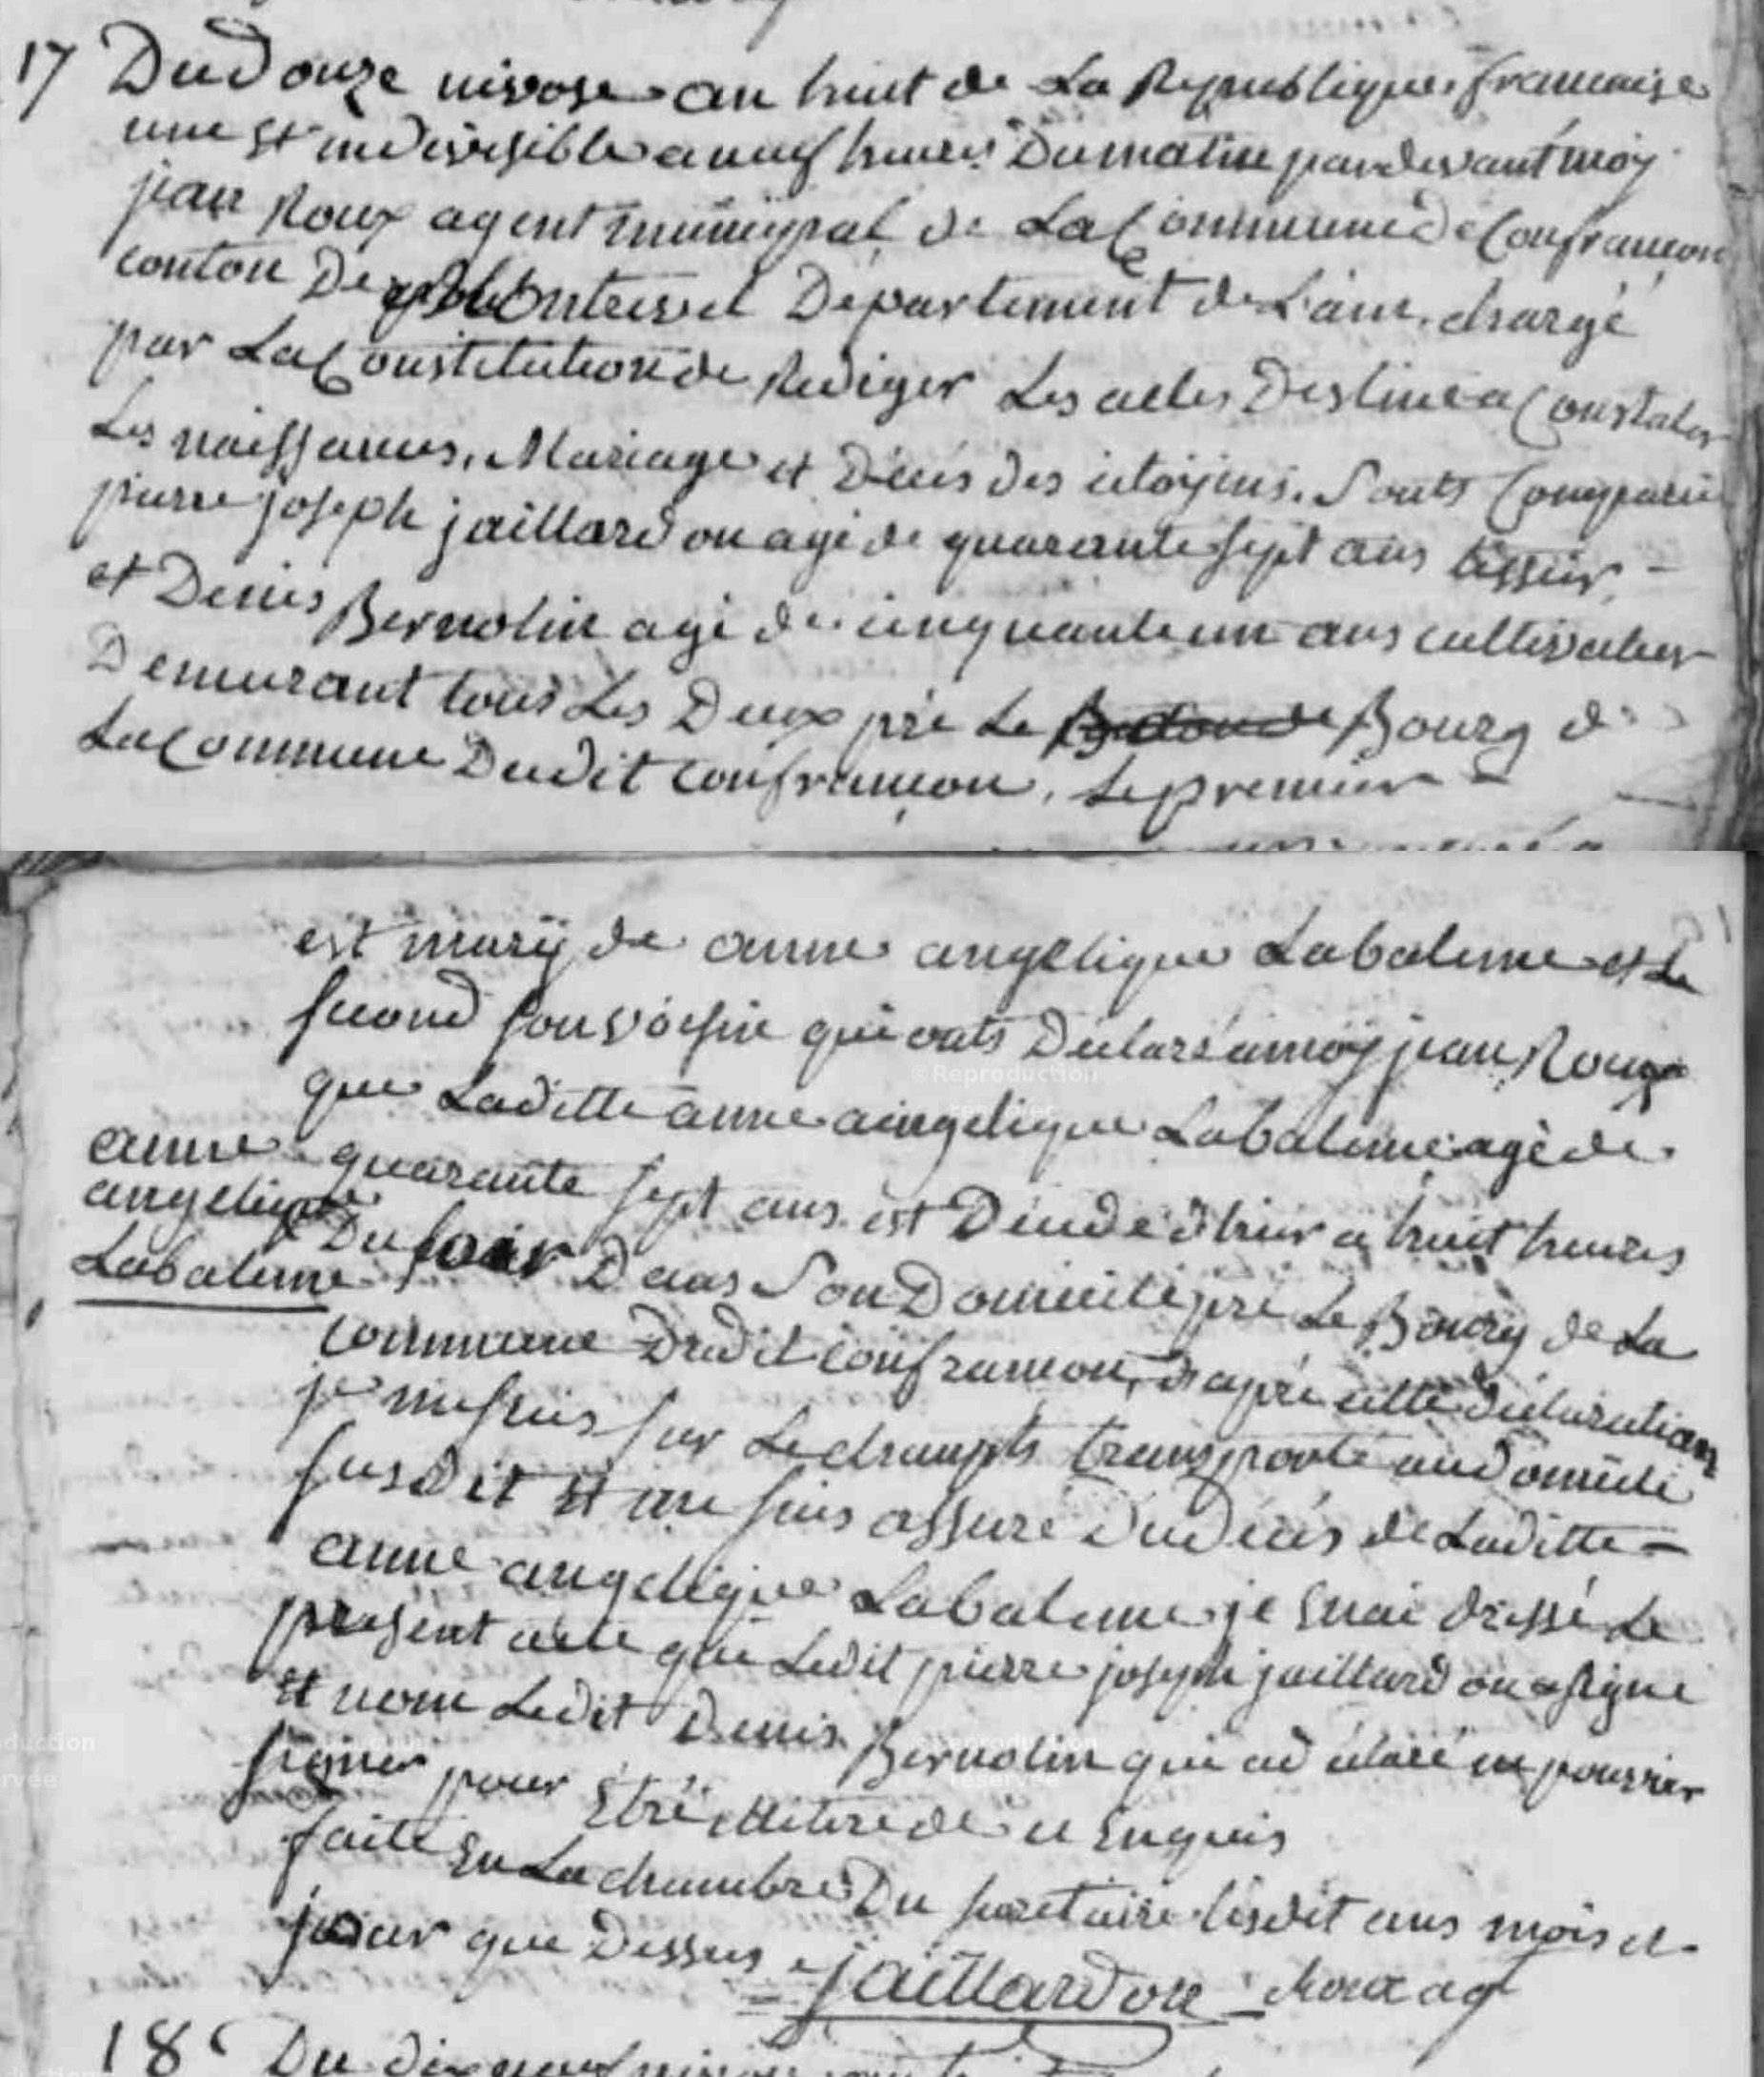 17 Du douze nivose an huit de La Republique francaise
une Et indivisible a neuf heures Du matin pardevant moy
jean Roux agent municipal de La Commune de Confrancon
conton De Departement de L'ain, chargé
par La Constitution de Rediger Les actes Destiné a Constater
Les naissances, Mariage et Décés des citoyens. Sonts Comparu
pierre joseph jaillardon agé de quarante sept ans tissier, -
et Denis Bernolin agé de cinquante un ans cultivateur
Demeurant tous Les Deux pré Le Bourg de
La Commune Dudit confrançon, Le premier -
est mary de anne angelique Labalme et Le
second son voisin qui onts Déclaré a moy jean Roux
que Laditte anne aingelique Labalme agé de
quarante sept ans est Décédé d'hier a huit heures
Du soir Dans Son Domicile pré Le Bourg de La
anne
angelique
Labalme
commune Dudit confrancon, d'apré cette déclaration
je me suis sur Le champts transporté au Domicile
susdit Et me suis assuré Du Décés de Laditte -
anne angelique Labalme je Enai dressé Le
present acte que Ledit pierre joseph jaillardon a signé
Et nom Ledit Denis Bernolin qui a déclaré ne pouvoir
signer pour Etre illiteré de ce Enquis
faite En La chambre Du secretaire Lesdit ans mois et
jour que Dessus
jaillardon Roux ag
18 Du dix neuf nivose